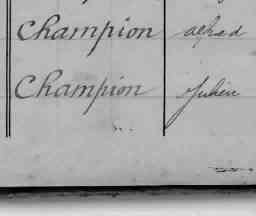 Champion alfred
Champion Julien